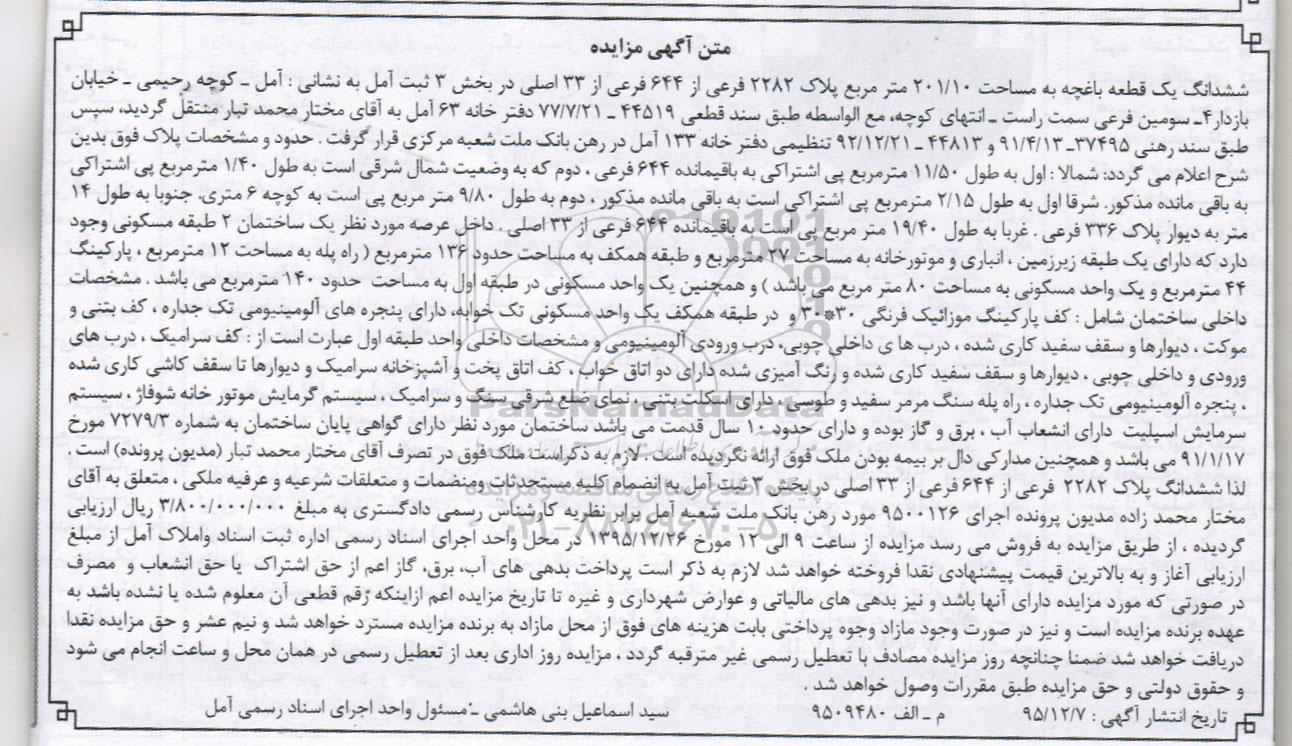 متن آگهی مزایده
ششدانگ یک قطعه باغچه به مساحت ۲۰۱/۱۰ متر مربع پلاک ۲۲۸۲ فرعی از ۶۴۴ فرعی از ۳۳ اصلی در بخش ۳ ثبت آمل به نشانی : آمل ـ کوچه رحیمی ـ خیابان
بازدار۴ـ سومین فرعی سمت راست ـ انتهای کوچه، مع الواسطه طبق سند قطعی ۴۴۵۱۹ ـ ۷۷/۷/۲۱ دفتر خانه ۶۳ آمل به آقای مختار محمد تبار منتقل گردید، سپس
طبق سند رهنی ۳۷۴۹۵ـ ۹۱/۴/۱۳ و ۴۴۸۱۳ ـ ۹۲/۱۲/۲۱ تنظیمی دفتر خانه ۱۳۳ آمل در رهن بانک ملت شعبه مرکزی قرار گرفت . حدود و مشخصات پلاک فوق بدین
شرح اعلام می گردد: شمالا : اول به طول ۱۱/۵۰ مترمربع پی اشتراکی به باقیمانده ۶۴۴ فرعی ، دوم که به وضعیت شمال شرقی است به طول ۱/۴۰ مترمربع پی اشتراکی
به باقی مانده مذکور. شرقا اول به طول ۲/۱۵ مترمربع پی اشتراکی است به باقی مانده مذکور ، دوم به طول ۹/۸۰ متر مربع پی است به کوچه ۶ متری. جنوبا به طول ۱۴
متر به دیوار پلاک ۳۳۶ فرعی . غربا به طول ۱۹/۴۰ متر مربع پی است به باقیمانده ۶۴۴ فرعی از ۳۳ اصلی . داخل عرصه مورد نظر یک ساختمان ۲ طبقه مسکونی وجود
دارد که دارای یک طبقه زیرزمین ، انباری و موتورخانه به مساحت ۲۷ مترمربع و طبقه همکف به مساحت حدود ۱۳۶ مترمربع ( راه پله به مساحت ۱۲ مترمربع ، پارکینگ
۴۴ مترمربع و یک واحد مسکونی به مساحت ۸۰ متر مربع می باشد ) و همچنین یک واحد مسکونی در طبقه اول به مساحت حدود ۱۴۰ مترمربع می باشد . مشخصات
داخلی ساختمان شامل : کف پارکینگ موزائیک فرنگی ۳۰*۳۰ و در طبقه همکف یک واحد مسکونی تک خوابه، دارای پنجره های آلومینیومی تک جداره ، کف بتنی و
موکت ، دیوارها و سقف سفید کاری شده ، درب ها ی داخلی چوبی، درب ورودی آلومینیومی و مشخصات داخلی واحد طبقه اول عبارت است از : کف سرامیک ، درب های
ورودی و داخلی چوبی ، دیوارها و سقف سفید کاری شده و رنگ آمیزی شده دارای دو اتاق خواب ، کف اتاق پخت و آشپزخانه سرامیک و دیوارها تا سقف کاشی کاری شده
، پنجره آلومینیومی تک جداره ، راه پله سنگ مرمر سفید و طوسی ، دارای اسکلت بتنی ، نمای ضلع شرقی سنگ و سرامیک ، سیستم گرمایش موتور خانه شوفاژ ، سیستم
سرمایش اسپلیت دارای انشعاب آب ، برق و گاز بوده و دارای حدود ۱۰ سال قدمت می باشد ساختمان مورد نظر دارای گواهی پایان ساختمان به شماره ۷۲۷۹/۳ مورخ
۹۱/۱/۱۷ می باشد و همچنین مدارکی دال بر بیمه بودن ملک فوق ارائه نگردیده است. لازم به ذکراست ملک فوق در تصرف آقای مختار محمد تبار (مدیون پرونده) است .
لذا ششدانگ پلاک ۲۲۸۲ فرعی از ۶۴۴ فرعی از ۳۳ اصلی در بخش ۳ ثبت آمل به انضمام کلیه مستحدثات ومنضمات و متعلقات شرعیه و عرفیه ملکی ، متعلق به آقای
مختار محمد زاده مدیون پرونده اجرای ۹۵۰۰۱۲۶ مورد رهن بانک ملت شعبه آمل برابر نظریه کارشناس رسمی دادگستری به مبلغ ۳/۸۰۰/۰۰۰/۰۰۰ ریال ارزیابی
گردیده ، از طریق مزایده به فروش می رسد مزایده از ساعت ۹ الی ۱۲ مورخ ۱۳۹۵/۱۲/۲۶ در محل واحد اجرای اسناد رسمی اداره ثبت اسناد واملاک آمل از مبلغ
ارزیابی آغاز و به بالاترین قیمت پیشنهادی نقدا فروخته خواهد شد لازم به ذکر است پرداخت بدهی های آب، برق، گاز اعم از حق اشتراک یا حق انشعاب و مصرف
در صورتی که مورد مزایده دارای آنها باشد و نیز بدهی های مالیاتی و عوارض شهرداری و غیره تا تاریخ مزایده اعم ازاینکه رقم قطعی آن معلوم شده یا نشده باشد به
عهده برنده مزایده است و نیز در صورت وجود مازاد وجوه پرداختی بابت هزینه های فوق از محل مازاد به برنده مزایده مسترد خواهد شد و نیم عشر و حق مزایده نقدا
دریافت خواهد شد ضمنا چنانچه روز مزایده مصادف با تعطیل رسمی غیر مترقبه گردد ، مزایده روز اداری بعد از تعطیل رسمی در همان محل و ساعت انجام می شود
و حقوق دولتی و حق مزایده طبق مقررات وصول خواهد شد .
تاریخ انتشار آگهی : ۹۵/۱۲/۷ م ـ الف ۹۵۰۹۴۸۰ سید اسماعیل بنی هاشمی ـ مسئول واحد اجرای اسناد رسمی آمل
ParsNamadData
۰۲۱-۸۸۳۴۹۶۷۰-۵